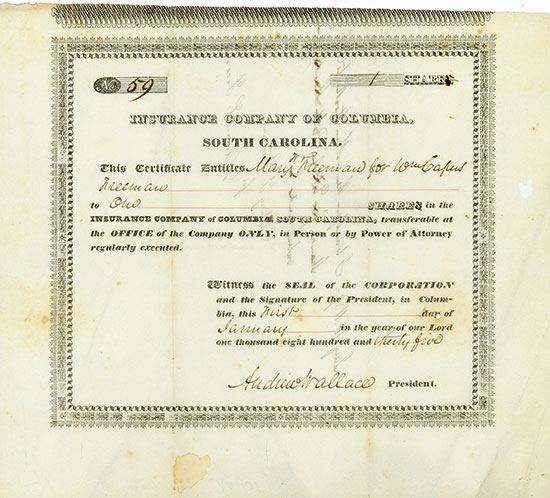 No 59 1 SHARES
INSURANCE COMPANY OF COLUMBIA,
SOUTH CAROLINA.
This Certificate Entitles Mary Freeman for Wm Capers
Freeman
to One SHARES in the
INSURANCE COMPANY of COLUMBIA SOUTH CAROLINA, transferable at
the OFFICE of the Company ONLY, in Person or by Power of Attorney
regularly executed.
Witness the SEAL of the CORPORATION
and the Signature of the President, in Colum-
bia, this First day of
January in the year of our Lord
one thousand eight hundred and thirty five
Andrew Wallace President.